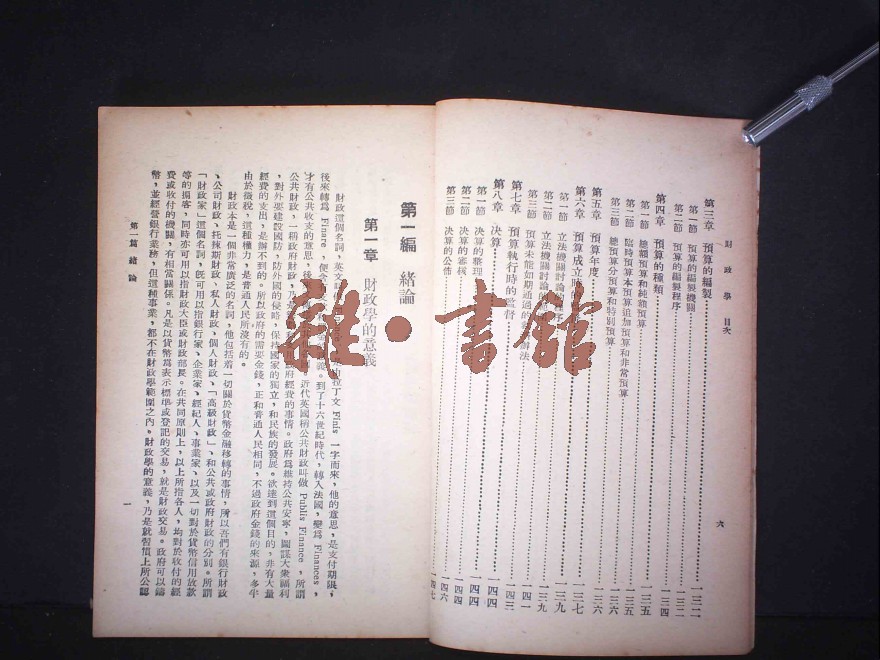 財政學　目次
六
第三章　預算的編製
一三二
第一節　預算的編製機關
一三二
第二節　預算的編製程序
第四章　預算的種類
一三四
第一節　總額預算和純額預算
一三五
第二節　臨時預算本預算追加預算和非常預算
一三五
第三節　總預算分預算和特別預算
一三六
第五章　預算年度
一三六
第六章　預算成立時的
一三七
第一節　立法機關討論
程序
一三九
第二節　立法機關討論的
一三九
第三節　預算未能如期通過的
辦法
一四一
第七章　預算執行時的監督
一四三
第八章　決算
一四四
第一節　決算的整理
一四四
第二節　決算的審核
一四六
第三節　決算的公佈
一四七
第一編　緒論
第一章　財政學的意義
財政這個名詞，英文
由拉丁文 Finis 一字而來，他的意思，是支付期限，
後來轉爲 Finare ，便含
義。到了十六世紀時代，轉入法國，變爲 Finances，
才有公共收支的意思，後
近代英國稱公共財政叫做 Publis Finance ，所謂
公共財政，一稱政府財政，乃是
用政府經費的事情。政府爲維持公共安寧，圖謀大衆福利
，對外要建設國防，防外國的侵略，保持國家的獨立，和民族的發展。欲達到這個目的，非有大量
經費的支出，是辦不到的。所以政府的需要金錢，正和普通人民相同，不過政府金錢的來源，多半
由於徵稅，這種權力，是普通人民所沒有的。
財政本是一個非常廣泛的名詞，他包括着一切關於貨幣金融移轉的事情，所以吾們有銀行財政
、公司財政、托辣斯財政、私人財政、個人財政、「高級財政」、和公共或政府財政的分別。所謂
「財政家」這個名詞，旣可用以指銀行家、企業家、經紀人、事業家、以及一切對於貨幣信用放款
等的掮客，同時亦可用以指財政大臣或財政部長。在共同原則上，以上所指各人，均對於收付的經
費或收付的機關，有相當關係。凡是以貨幣爲表示標準或登記的交易，就是財政交易。政府可以鑄
幣，並經營銀行業務，但這種事業，都不在財政學範圍之內。財政學的意義，乃是就習慣上所公認
第一篇緒論
一
雜●書館